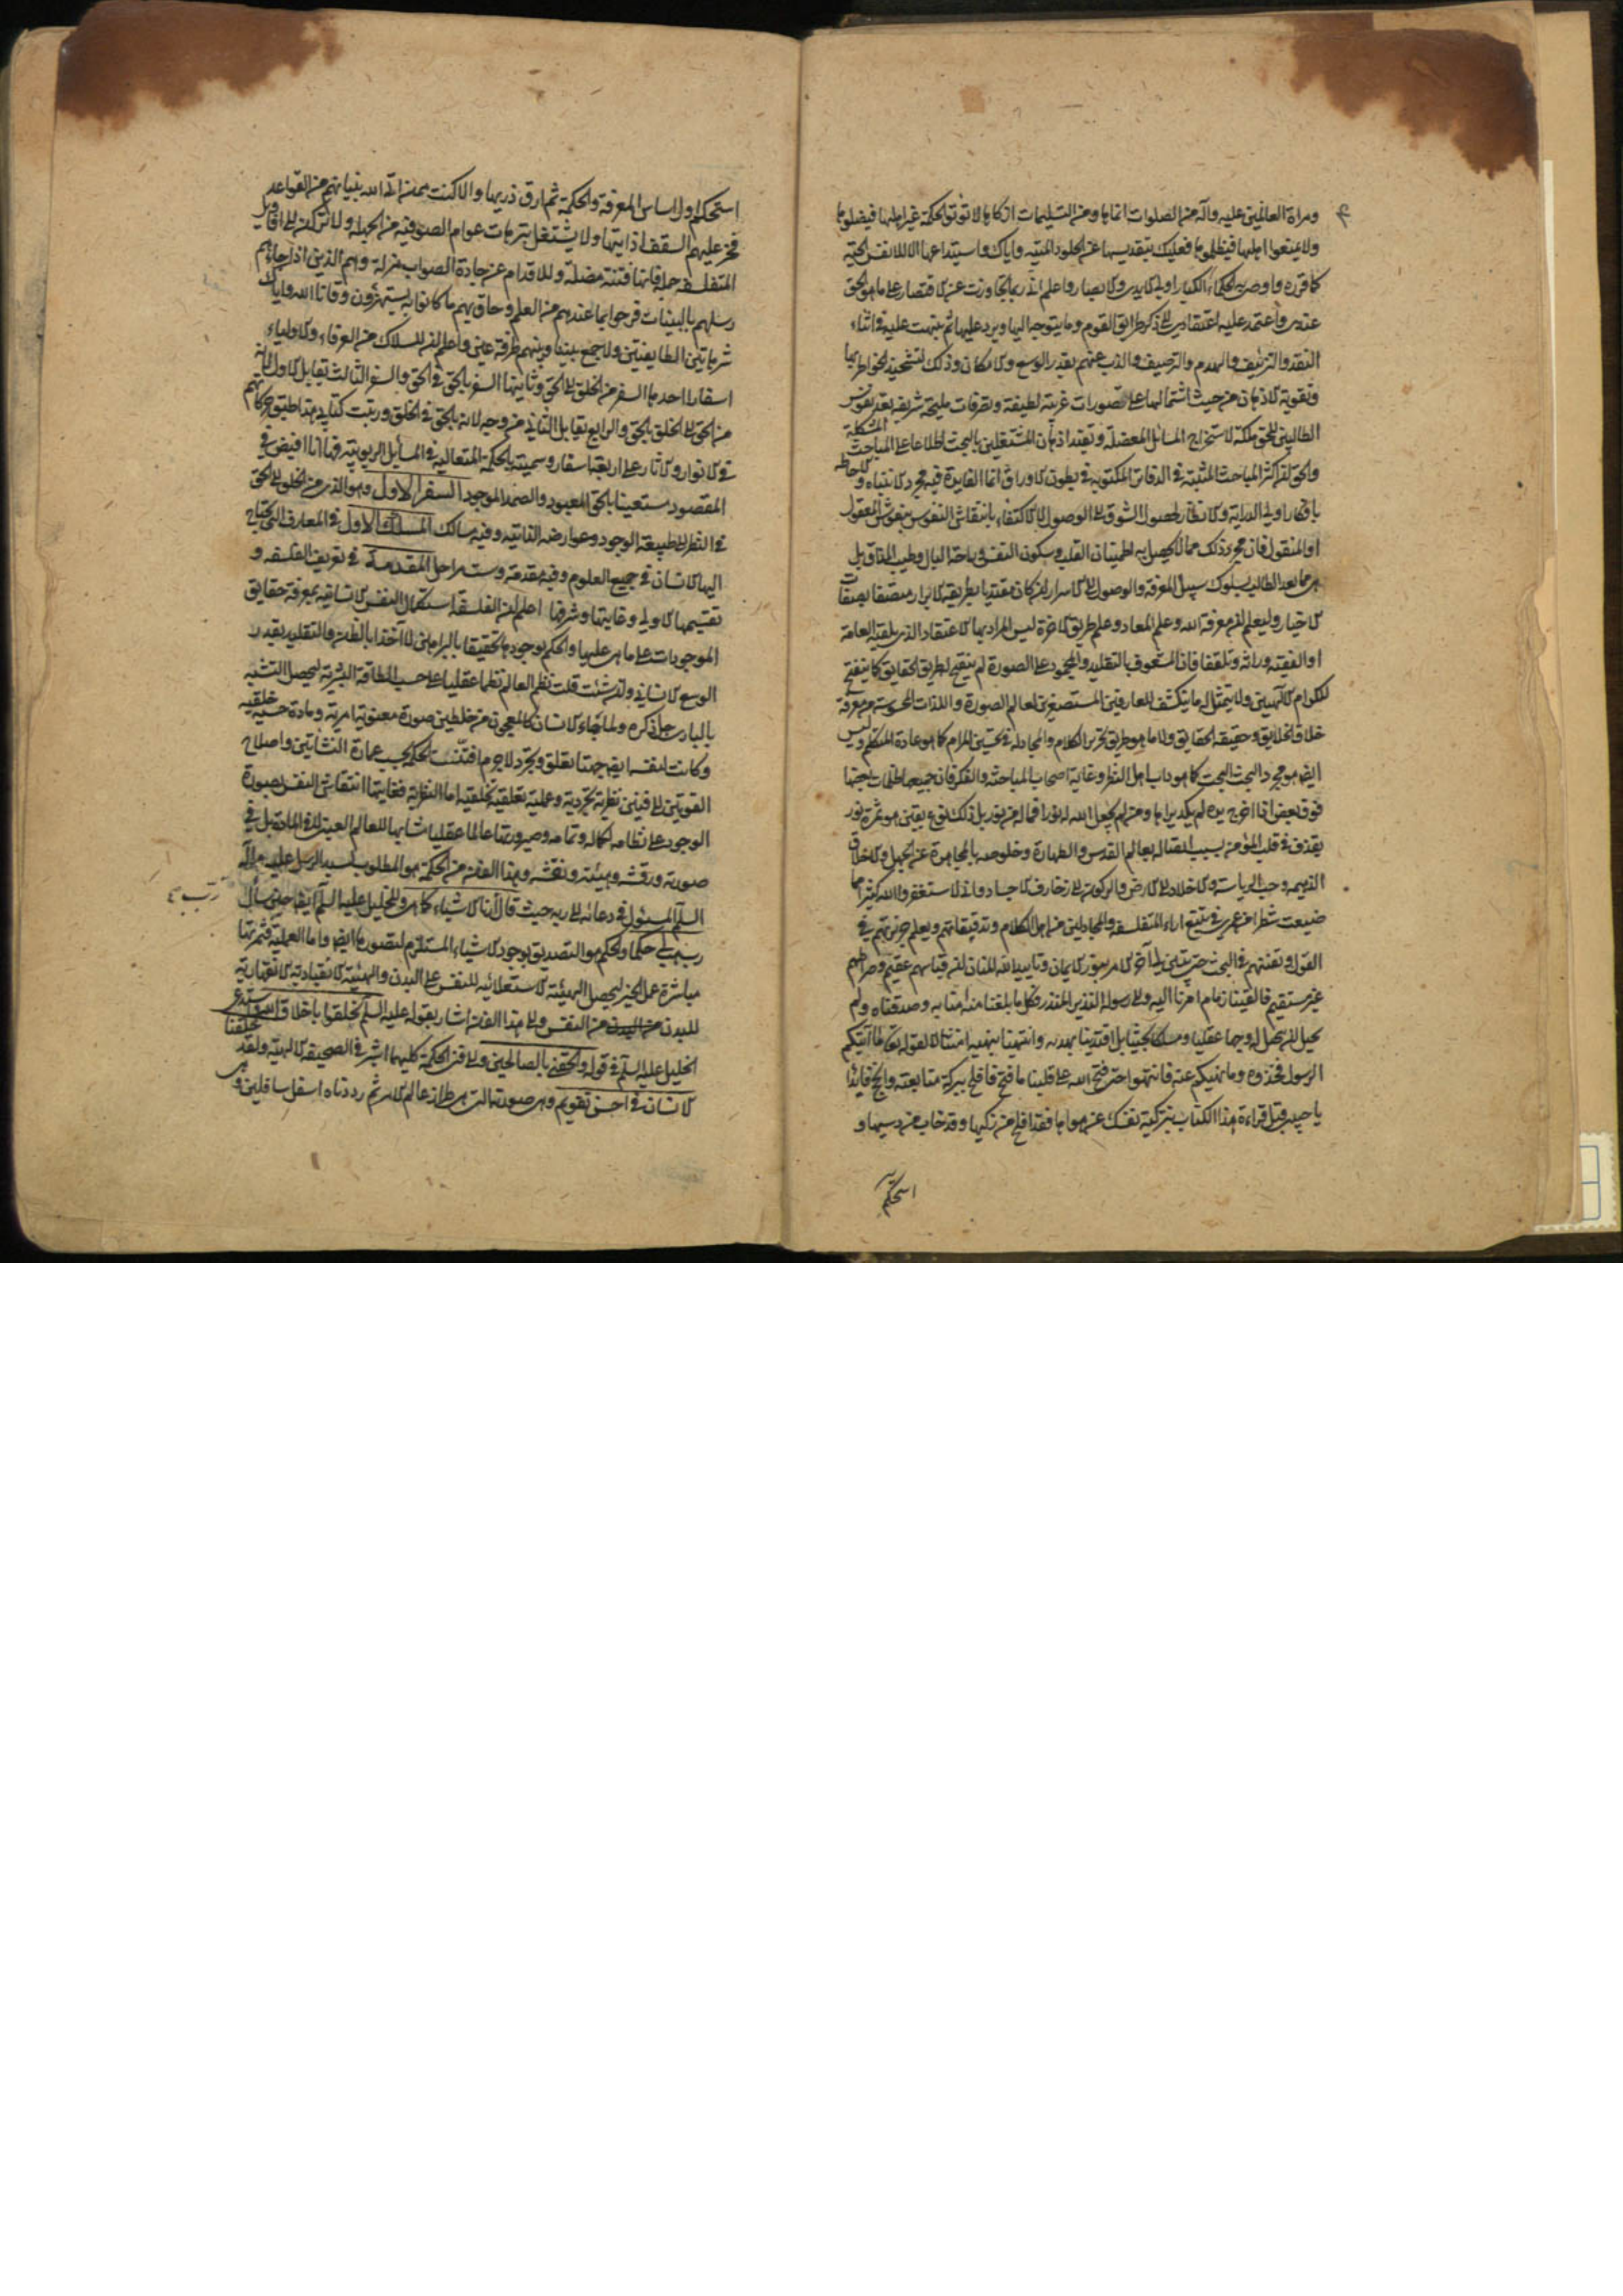 ومراة العالمين عليه وآله من الصلوات انماها ومن التسليمات ازكاها لا تؤتوا الحكمة غير اهلها فيضلوها
ولا يمنعوا اهلها فيظلموها فعليك بتقديسها عن الجلود الميتة واياك واستيداعها الا للانفس الحية
كما قرره واوصى به الحكماء الكبار اولي الايدي والابصار واعلم اني ربما تجاوزت عن الاقتصار على ما هو الحق
عندي واعتمد عليه اعتقادي الى ذكر طرائق القوم وما يتوجه اليها ويرد عليها ثم نبهت عليه في اثناء
النقد والتزييف والهدم والترصيف والذب عنهم بقدر الوسع والامكان وذلك لتشحيذ الخواطر بها
وتقوية الاذهان من حيث اشتمالها على تصورات غريبة لطيفة وتصرفات مليحة شريفة تعد نفوس
الطالبين للحق ملكة لاستخراج المسائل المعضلة وتفيد اذهان المشتغلين بالبحث اطلاعا على المباحث المشكلة
والحق ان اكثر المباحث المثبتة في الدفاتر المكتوبة في بطون الاوراق انما الفايدة فيه مجرد الانتباه والاحاطة
بافكار اولي الدراية والانظار لحصول الشوق الى الوصول لا الاكتفاء بانتقاش النفوس بنقوش المعقول
او المنقول فان مجرد ذلك مما لا يحصل به اطمينان القلب وسكون النفس وراحة البال وطيب المذاق بل
هي مما يعد الطالب لسلوك سبيل المعرفة والوصول الى الاسرار ان كان مقتديا بطريقة الابرار متصفا بصفات
الاخيار وليعلم ان معرفة الله وعلم المعاد وعلم طريق الاخرة ليس المراد بها الاعتقاد الذي يلقيه العامة
او الفقيه وراثة وتلقفا فان المشعوف بالتقليد والمجمود على الصورة لم ينفتح له طريق الحقايق كما ينفتح
للكرام الالهيين ولا يتمثل له ما ينكشف للعارفين المستصغرين لعالم الصورة واللذات المحسوسة من معرفة
خلاق الخلايق وحقيقة الحقايق ولا ما هو طريق تحرير الكلام والمجادلة في تحسين المرام كما هو عادة المتكلم وليس
ايضا هو مجرد البحث البحت كما هو داب اهل النظر وغاية اصحاب المباحثة والفكر فان جميعها ظلمات بعضها
فوق بعض اذا اخرج يده لم يكد يراها ومن لم يجعل الله له نورا فما له من نور بل ذلك نوع يقين هو ثمرة نور
يقذف في قلب المؤمن بسبب اتصاله بعالم القدس والطهارة وخلوصه بالمجاهدة عن الجهل والاخلاق
الذميمة وحب الرياسة والاخلاد الى الارض والركون الى زخارف الاجساد واني لاستغفر الله كثيرا مما
ضيعت شطرا من عمري في تتبع اراء المتفلسفة والمجادلين من اهل الكلام وتدقيقاتهم ويعلم جربزتهم في
القول وتفننهم في البحث حتى تبين لي آخر الامر بنور الايمان وتاييد الله المنان ان قياسهم عقيم وصراطهم
غير مستقيم فالقينا زمام امرنا اليه والى رسوله النذير المنذر فكل ما بلغنا منه آمنا به وصدقناه ولم
نحيل ان نحيل له وجها عقليا ومسلكا بحثيا بل اقتدينا بهديه وانتهينا بنهيه امتثالا لقوله تعالى ما آتيكم
الرسول فخذوه وما نهيكم عنه فانتهوا حتى فتح الله على قلبنا ما فتح فافلح ببركة متابعته وانجح فابدا
يا حبيبي قبل قراءة هذا الكتاب بتزكية نفسك عن هواها فقد افلح من زكيها وقد خاب من دسيها و
استحكم
استحكم اولا اساس المعرفة والحكمة ثم ارق ذريها والا كنت ممن اتى الله بنيانهم من القواعد
فخر عليهم السقف اذ اتيتها ولا يشتغل بترهات عوام الصوفية من الجهلة ولا تركن الى اقاويل
المتفلسفة جملة فانها فتنة مضلة وللاقدام عن جادة الصواب مزلة وهم الذين اذا جاءتهم
رسلهم بالبينات فرحوا بما عندهم من العلم وحاق بهم ما كانوا به يستهزؤن وقانا الله واياك
شر هاتين الطايفتين ولا جمع بيننا وبينهم طرفة عين واعلم ان للسلاك من العرفاء والاولياء
اسفارا احدها السفر من الخلق الى الحق وثانيها السفر بالحق في الحق والسفر الثالث يقابل الاول لانه
من الحق الى الخلق بالحق والرابع يقابل الثاني من وجه لانه بالحق في الخلق ورتبت كتابي هذا طبق حركاتهم
في الانوار والاثار على اربعة اسفار وسميته بالحكمة المتعالية في المسايل الربوبية فها انا افيض في
المقصود مستعينا بالحق المعبود والصمد الموجود السفر الاول وهو الذي من الخلق الى الحق
في النظر الى طبيعة الوجود وعوارضه الذاتية وفيه مسالك المسلك الاول في المعارف التي يحتاج
اليها الانسان في جميع العلوم وفيه مقدمة وست مراحل المقدمة في تعريف الفلسفة و
تقسيمها الاولي وغايتها وشرفها اعلم ان الفلسفة استكمال النفس الانسانية بمعرفة حقايق
الموجودات على ما هي عليها والحكم بوجودها تحقيقا بالبراهين لا آخذا بالظن والتقليد بقدر
الوسع الانساني وان شئت قلت نظم العالم نظما عقليا على حسب الطاقة البشرية ليحصل التشبه
بالباري جل ذكره ولما جاء الانسان كالمعجون من خلطين صورة معنوية امرية ومادة حسية خلقية
وكانت لنفسه ايضا جهتا تعلق وتجرد لا جرم افتنت الحكمة بحسب عمارة النشاتين واصلاح
القوتين الى فنين نظرية تجردية وعملية تعلقية تخلقية اما النظرية فغايتها انتقاش النفس بصورة
الوجود على نظامه بكماله وتمامه وصيرورتها عالما عقليا مشابها للعالم العيني لا في المادة بل في
صورته ورقشه وهيئته ونقشه وهذا الفن من الحكمة هو المطلوب لسيد الرسل عليه وآله
السلم المسئول في دعائه الى ربه حيث قال ارنا الاشياء كما هي وللخليل عليه السلم ايضا حين سأل
رب هب لي حكما والحكم هو التصديق بوجود الاشياء المستلزم لتصورها ايضا واما العملية فثمرتها
رب
مباشرة عمل الخير لتحصيل الهيئة الاستعلائية للنفس على البدن والهيئة الانقيادية الانقهارية
للبدن من النفس والى هذا الفن اشار بقوله عليه السلم تخلقوا باخلاق الله واستدعى
الخليل عليه السلم في قوله والحقني بالصالحين والى فني الحكمة كليهما اشير في الصحيفة الالهية ولقد خلقنا
الانسان في احسن تقويم وهي صورته التي هي طراز عالم الامر ثم رددناه اسفل سافلين وهي